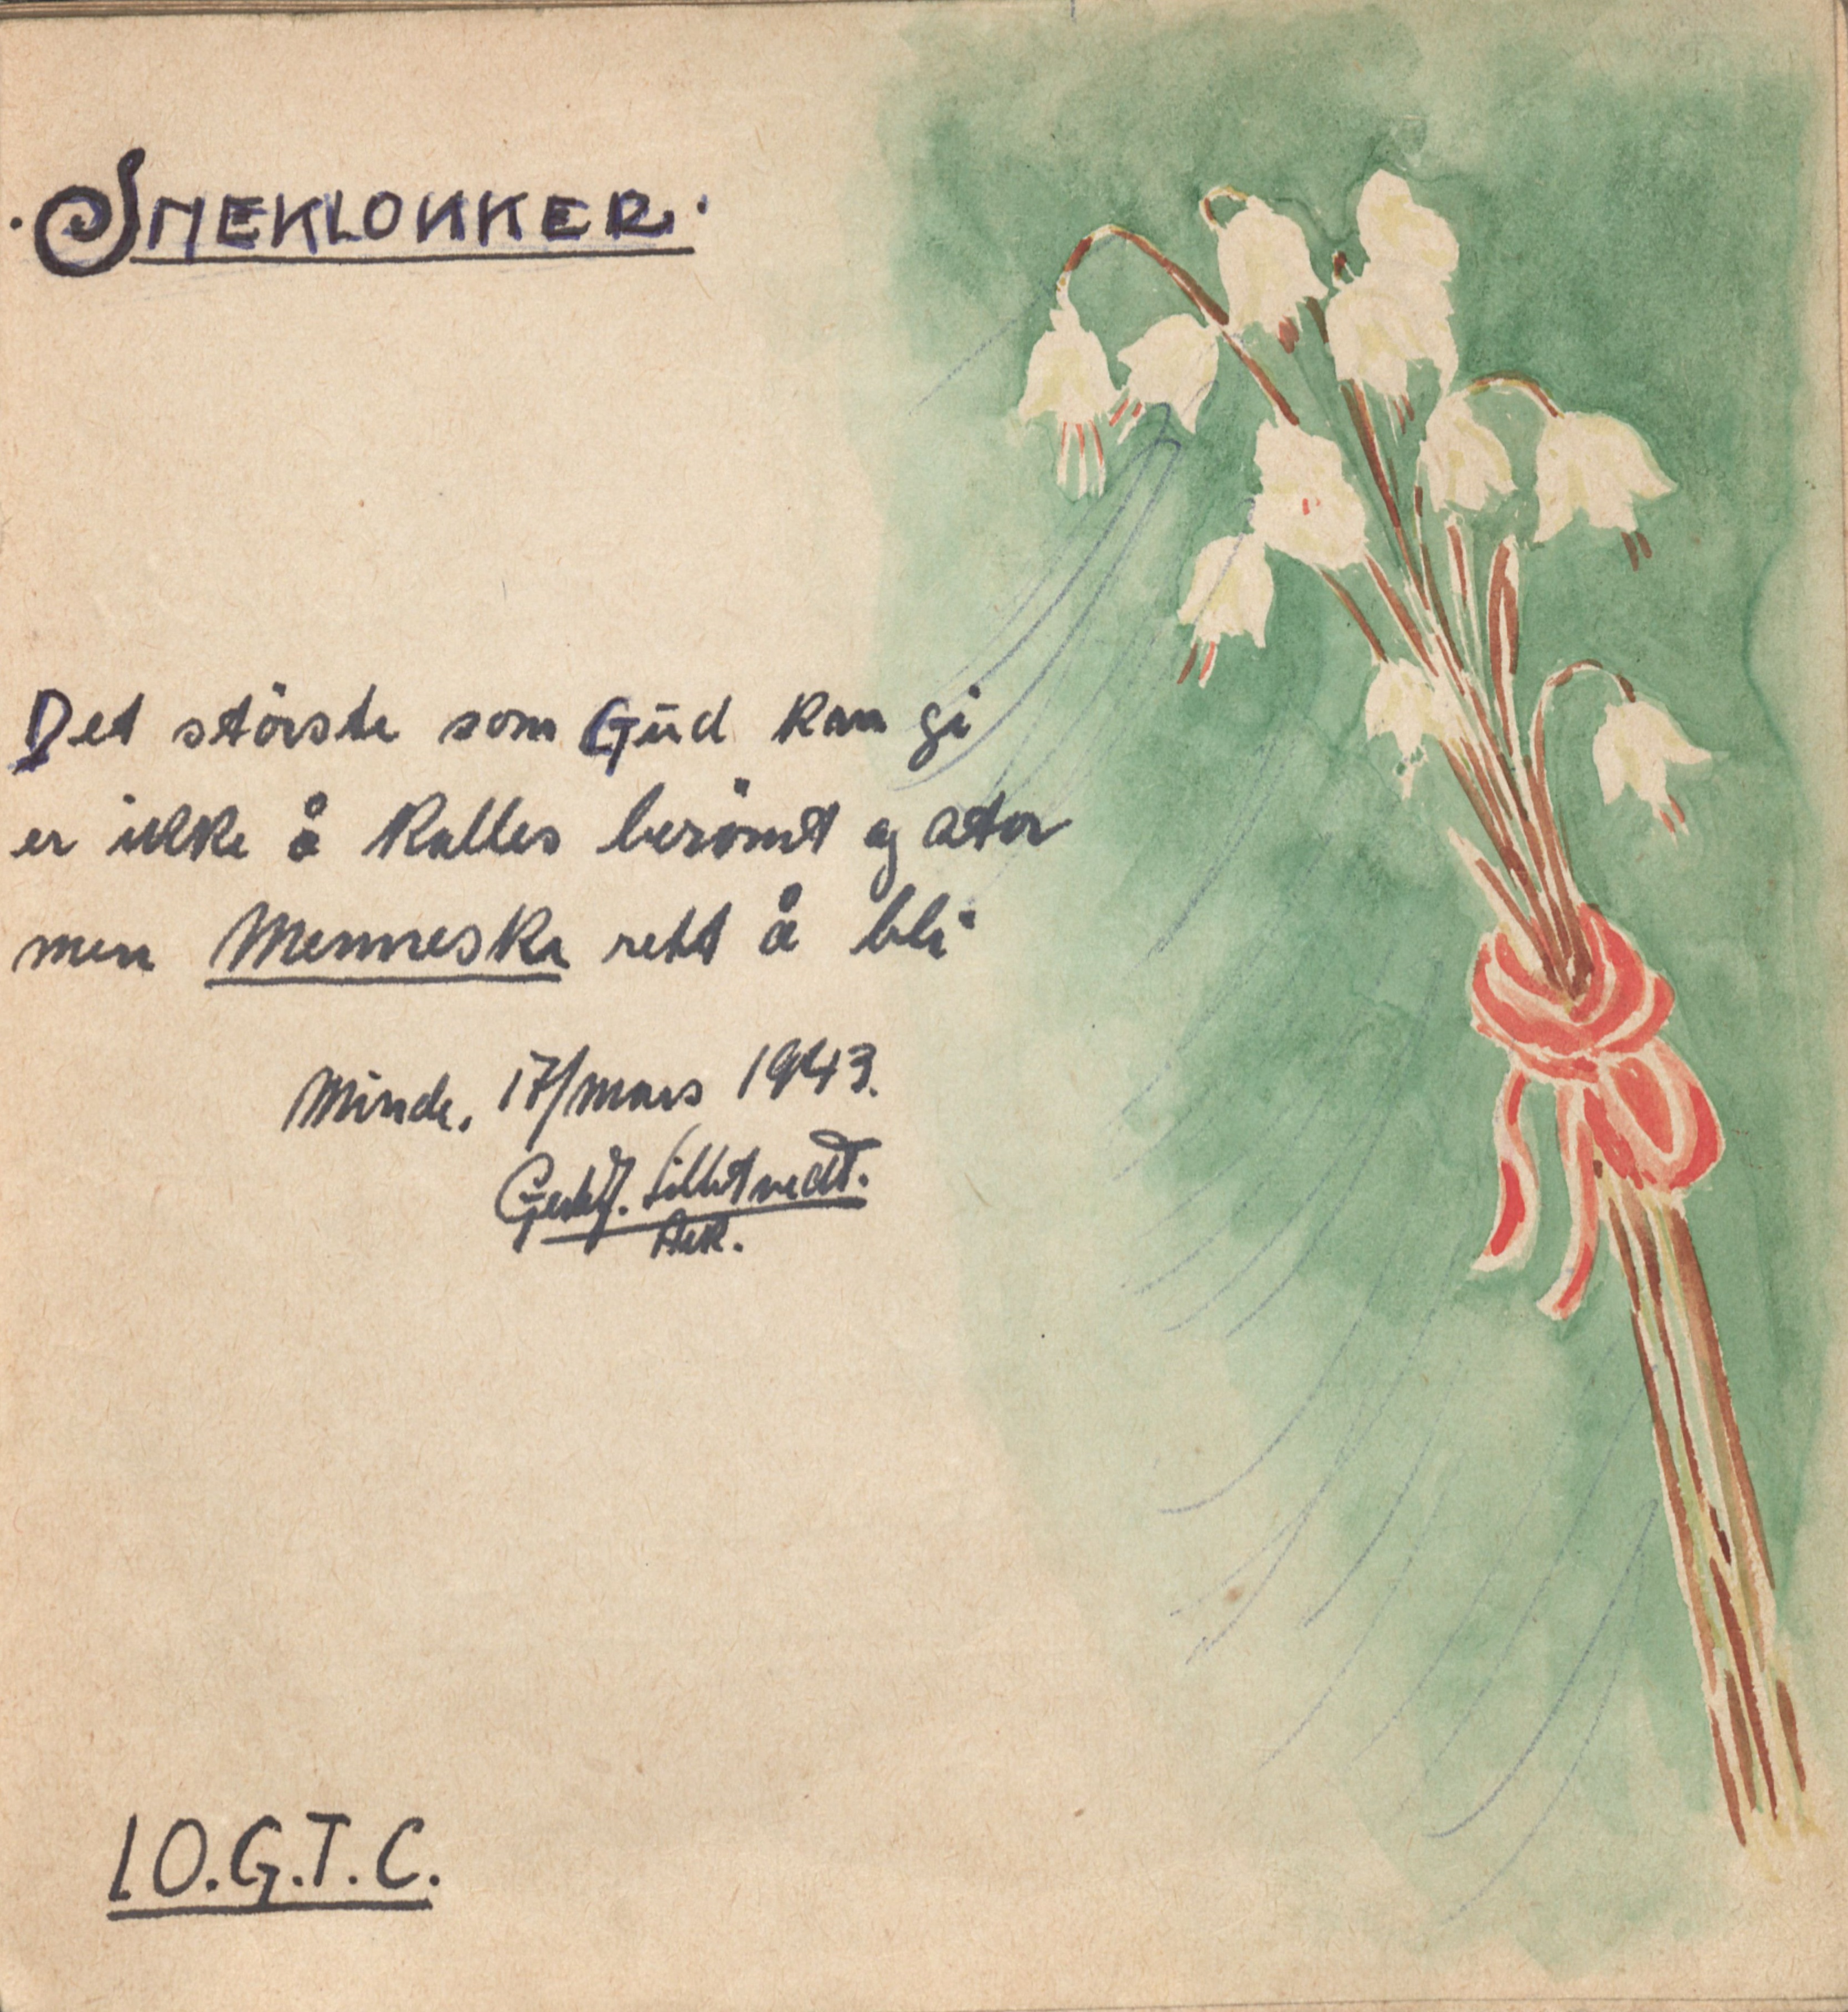 · SNEKLOKKER ·
Det störste som Gud kan gi
er ikke å kalles berömt og stor
men Menneske rett å bli
Minde, 17/mars 1943.
Ark.
I.O.G.T.C.